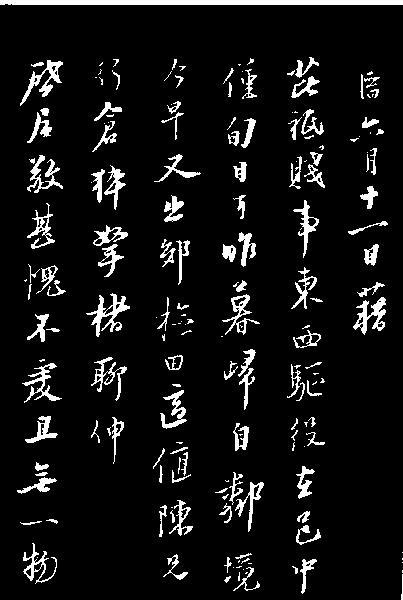 六月十一日藉
芘祇賤事東西驅役在邑中
僅旬日耳昨暮歸自鄰境
今早又出郊檢田適值陳兄
行倉猝拏楮聊伸
啓居敬甚愧不虔且無一物